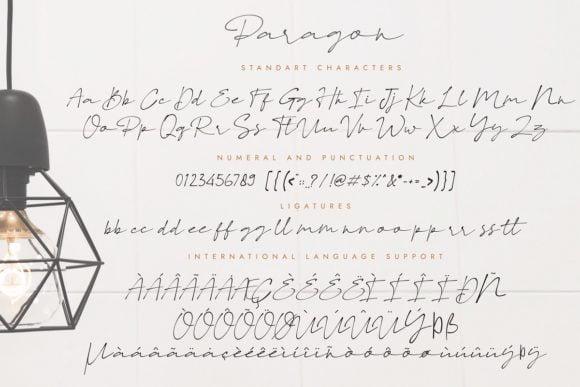 Paragon
STANDART CHARACTERS
Aa Bb Cc Dd Ee Ff Gg Hh Ii Jj Kk Ll Mm Nn
Oo Pp Qq Rr Ss Tt Uu Vv Ww Xx Yy Zz
NUMERAL AND PUNCTUATION
0123456789
LIGATURES
bb cc dd ee ff gg ll mm nn oo pp rr ss tt
INTERNATIONAL LANGUAGE SUPPORT
ÀÁÂÃÄÅÆÇÈÉÊËÌÍÎÏÐÑ
ÒÓÔÕÖØÙÚÛÜÝÞß